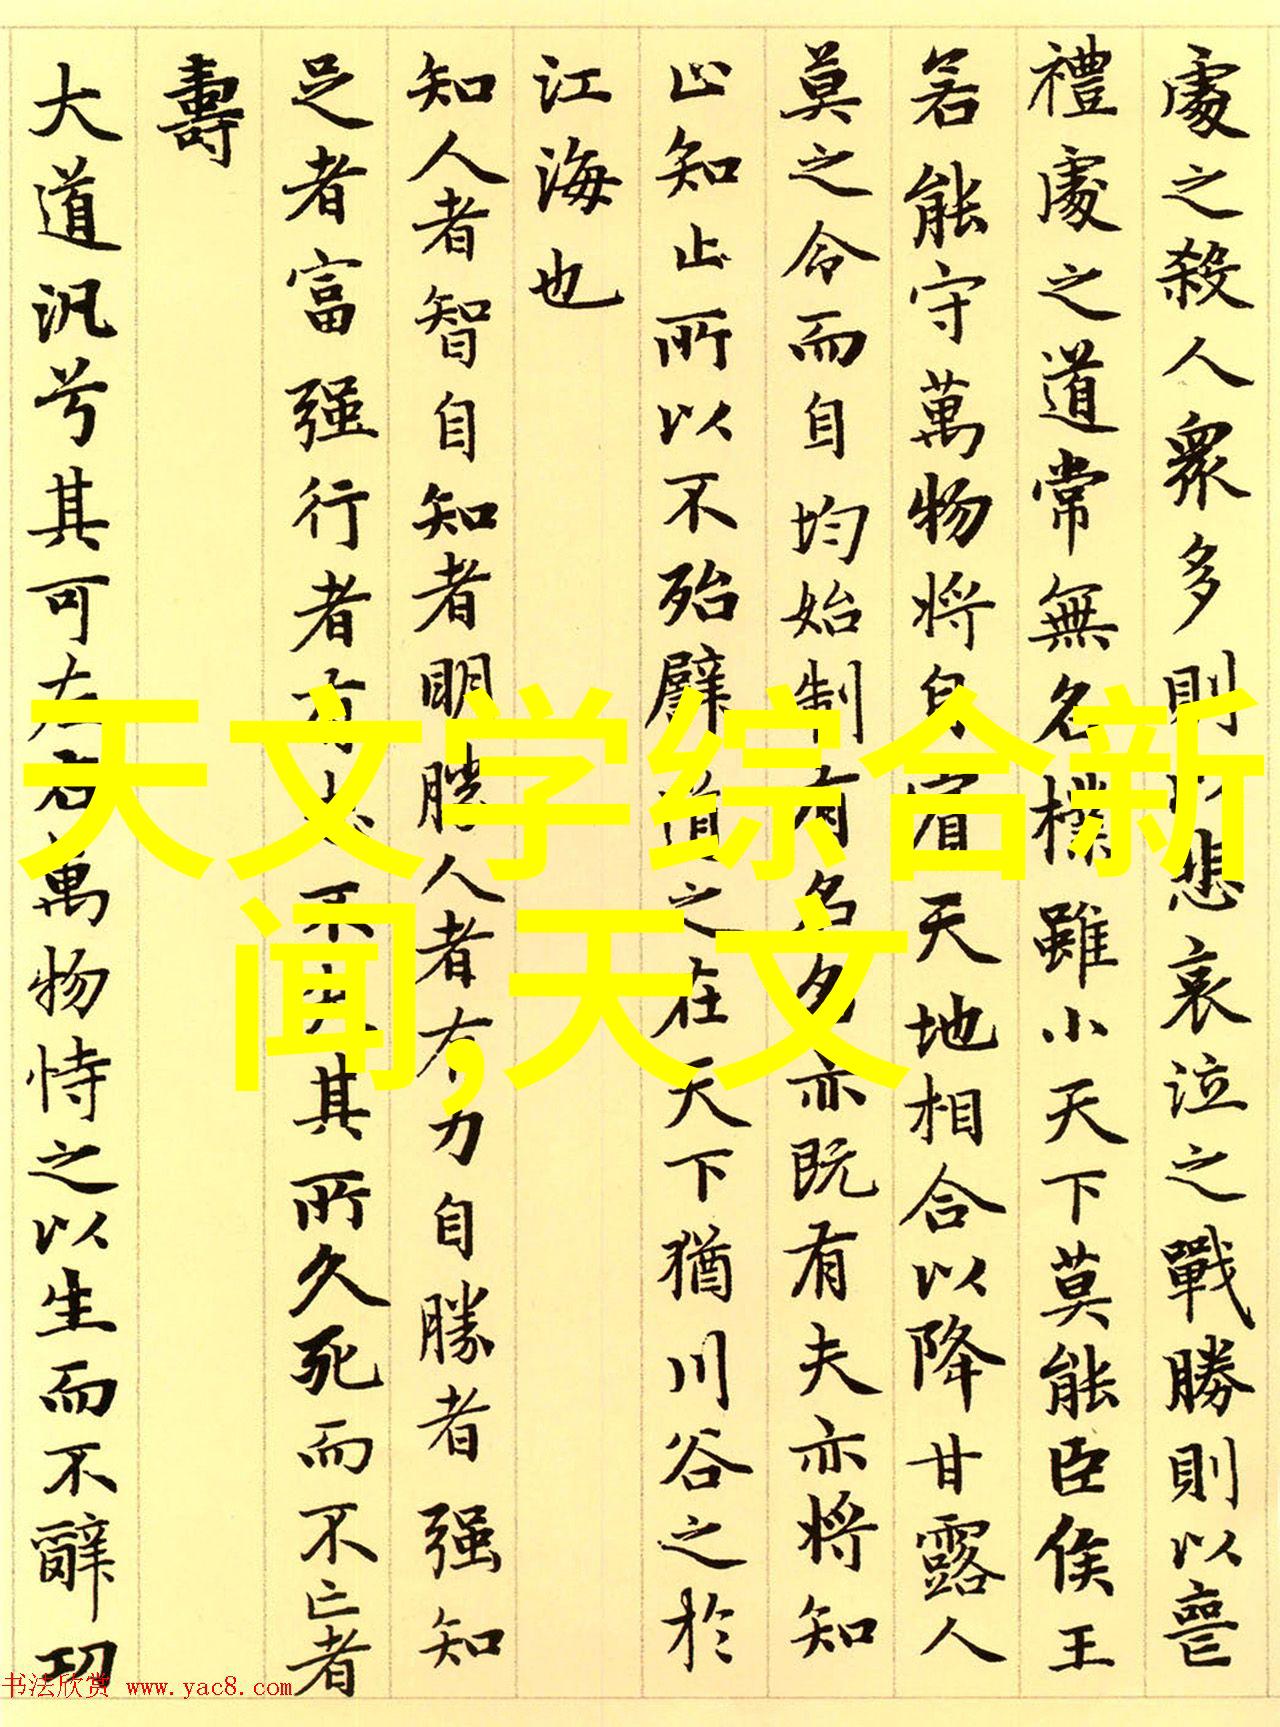 處之殺人衆多則以悲哀泣之戰勝則以喪
禮處之道常無名樸雖小天下莫能臣侯王
若能守萬物將自賓天地相合以降甘露人
莫之令而自均始制有名名亦既有夫亦將知
止知止所以不殆譬道之在天下猶川谷之於
江海也
知人者智自知者明勝人者有力自勝者强知
足者富强行者有志不失其所久死而不亡者
壽
大道汎兮其可左右萬物恃之以生而不辭功
天文学综合新
闻,天文
书法欣赏 www.yac8.com